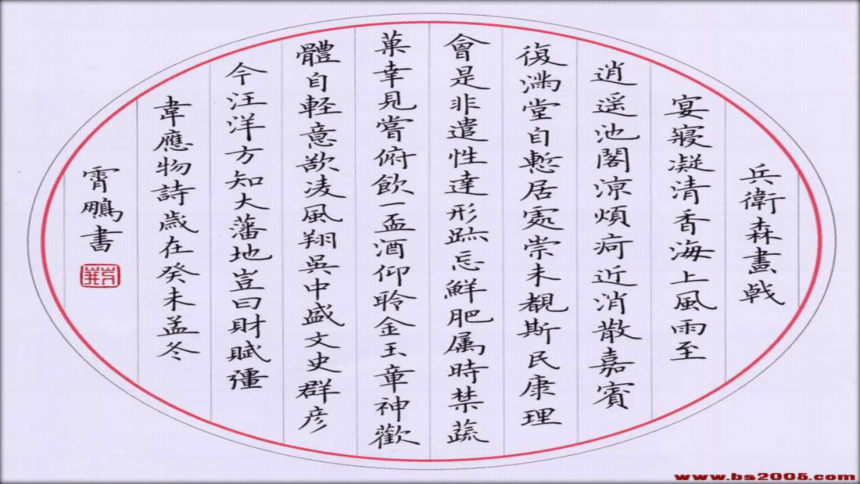 兵衛森畫戟
宴寢凝清香海上風雨至
逍遥池閣涼煩疴近消散嘉賓
復滿堂自慙居處崇未覩斯民康理
會是非遣性達形跡忘鮮肥属時禁蔬
菓幸見嘗俯飲一盃酒仰聆金玉章神歡
體自輕意欲凌風翔吳中盛文史群彦
今汪洋方知大藩地豈曰財賦彊
韋應物詩歲在癸未孟冬
霄鵬書
www.bs2005.com